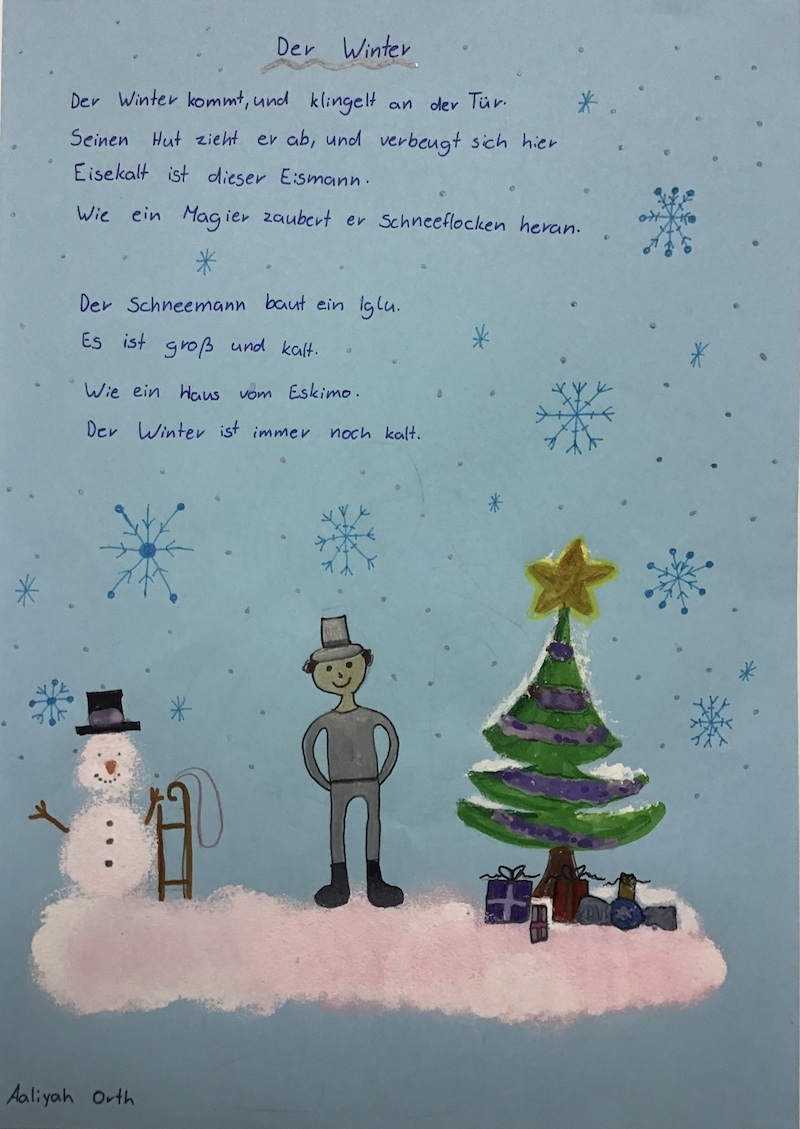 Der Winter
Der Winter kommt, und klingelt an der Tür.
Seinen Hut zieht er ab, und verbeugt sich hier
Eisekalt ist dieser Eismann.
Wie ein Magier zaubert er Schneeflocken heran.
Der Schneemann baut ein Iglu.
Es ist groß und kalt.
Wie ein Haus vom Eskimo.
Der Winter ist immer noch kalt.
Aaliyah Orth